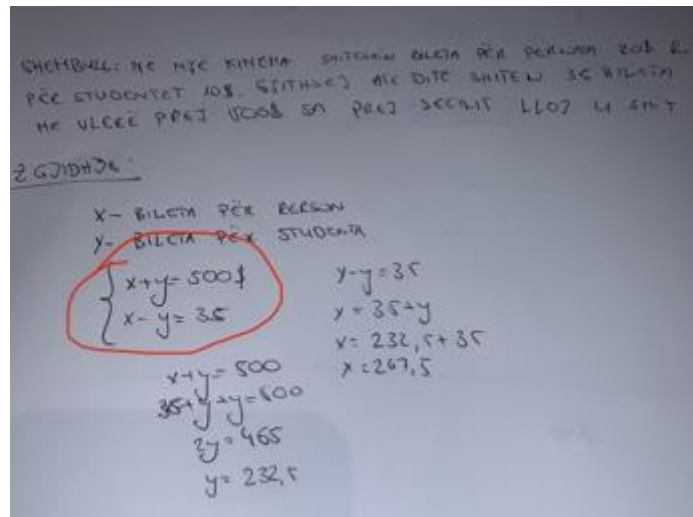 SHEMBULL: NË NJË KINEMA SHITESHIN BILETA PËR PERSON 20$ E
PËR STUDENTËT 10$. GJITHSEJ ATË DITË SHITEN 35 BILETA
ME VLERË PREJ 500$ SA PREJ SECILIT LLOJ U SHIT
ZGJIDHJE:
X- BILETA PËR PERSON
Y- BILETA PËR STUDENTA
x+y=500$
x-y=35
x+y=500
35+y+y=500
2y=465
y=232,5
x-y=35
x=35+y
x=232,5+35
x=267,5